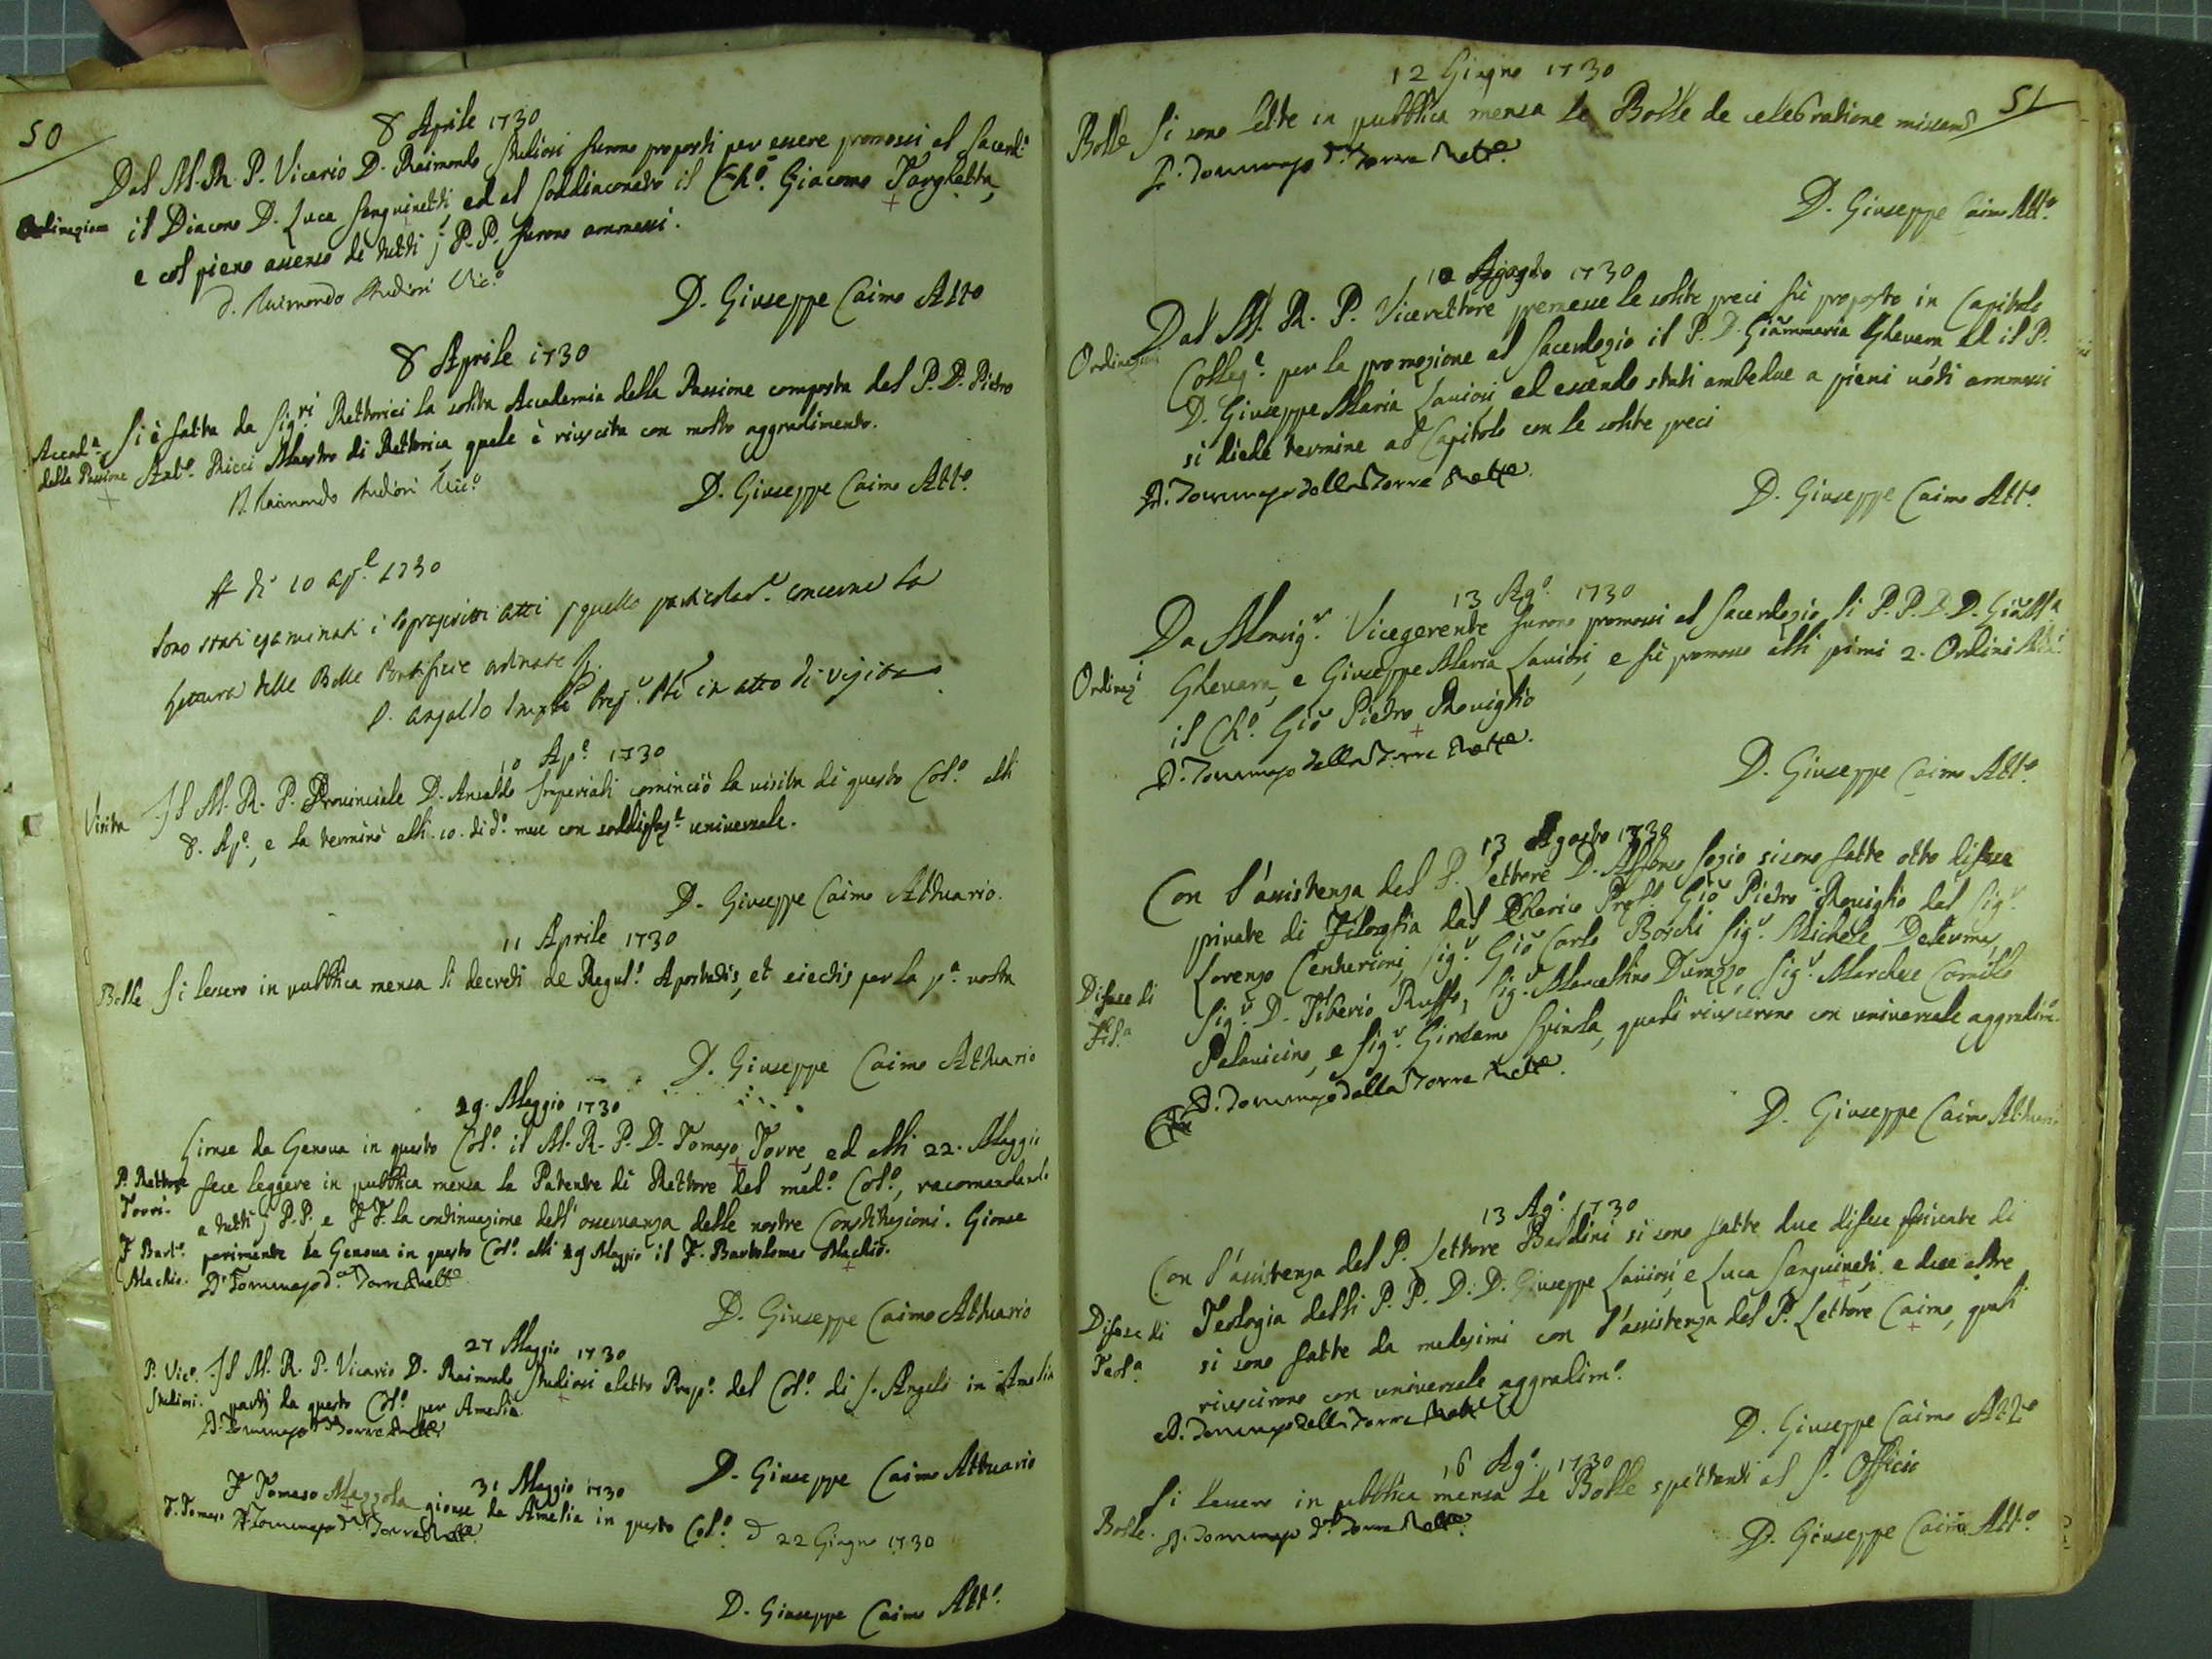 50
8 Aprile 1730
Dal M. R. P. Vicario D. Raimondo Studiosi furono proposti per essere promossi al Sacerd.º
Ordinazione il Diacono D. Luca Sanguinetti, ed al soddiaconato il Ch.º Giacomo Targhetta,
e col pieno assenso di tutti j P.P. furono ammessi.
D. Raimondo Studiosi Vic.º
D. Giuseppe Caimo Att.º
8 Aprile 1730
Accad.ª Si è fatta da Sig.ri Rettorici la solita Accademia della Passione composta dal P. D. Pietro
della Passione Ant.º Ricci Maestro di Rettorica, quale è riuscita con molto aggradimento.
D. Raimondo Studiosi Vic.º
D. Giuseppe Caimo Att.º
A dì 10 ap.e 1730
Sono stati esaminati i soprascritti atti quello particolar.e concerne la
lettura delle Bolle Pontificie ordinate
D. Ansaldo Imp.le Prep.to Ple in atto di visita
10 Ap.e 1730
Visita Il M. R. P. Provinciale D. Ansaldo Imperiali cominciò la visita di questo Col.º alli
8. Ap.e, e la terminò alli 10. di d.º mese con soddisfaz.e universale.
D. Giuseppe Caimo Attuario.
11 Aprile 1730
Bolle Si lessero in pubblica mensa li decreti de Regul.s Apostatis, et eiectis per la p.ª volta
D. Giuseppe Caimo Attuario
19. Maggio 1730
Gionse da Genova in questo Col.º il M. R. P. D. Tomaso Torre, ed alli 22. Maggio
P. Rettore fece leggere in pubblica mensa la Patente di Rettore del med.º Col.º, racomandando
Torri. a tutti j P.P. e F.F. la continuazione dell' osservanza delle nostre Constituzioni. Gionse
F. Bart.º parimente da Genova in questo Col.º alli 19 Maggio il F. Bartolomeo Machio.
Machio. D. Tommaso d.ª Torre Rett.e
D. Giuseppe Caimo Attuario
27 Maggio 1730
P. Vic.º Il M. R. P. Vicario D. Raimondo Studiosi eletto Prep.º del Col.º di S. Angelo in Amelia
Studiosi. partì da questo Col.º per Amelia
D. Tommaso d.ª Torre Rett.e
D. Giuseppe Caimo Attuario
31 Maggio 1730
F. Tomaso F Tomaso Mazzola gionse da Amelia in questo Col.º
D. Tommaso d.ª Torre Rett.e
22 Giugno 1730
D. Giuseppe Caimo Att.º
51
12 Giugno 1730
Bolle Si sono lette in pubblica mensa le Bolle de celebratione missarũ
D. Tommaso d.ª Torre Rett.e
D. Giuseppe Caimo Att.º
12 Agosto 1730
Dal M. R. P. Vicerettore premesse le solite preci fù proposto in Capitolo
Ordinazioni Colleg.e per la promozione al Sacerdozio il P. D. Giammaria Ghevara ed il P.
D. Giuseppe Maria Laviosi ed essendo stati ambedue a pieni voti ammessi
si diede termine al Capitolo con le solite preci
D. Tommaso della Torre Rett.e
D. Giuseppe Caimo Att.º
13 Ag.º 1730
Da Monsig.r Vicegerente furono promossi al Sacerdozio li P.P. D.D. Giãm.ª
Ordinaz.i Ghevara, e Giuseppe Maria Laviosi, e fù promosso alli primi 2. Ordini
il Ch.º Giõ Pietro Roviglio
D. Tommaso della Torre Rett.e
D. Giuseppe Caimo Att.º
13 Agosto 1730
Con l'assistenza del P. Lettore D. Alfonso Sozio si sono fatte otto difese
private di Filosofia dal Cherico Prof.º Giõ Pietro Roviglio dal Sig.r
Difese di Lorenzo Centurioni, Sig.r Giõ Carlo Boschi Sig.r Michele
Fil.ª Sig.r D. Tiberio Ruffo, Sig.r Marcellino Durazzo, Sig.r Marchese Camillo
Palavicino, e Sig.r Girolamo Spinola, quali riuscirono con universale aggradim.º
D. Tommaso della Torre Rett.e
D. Giuseppe Caimo Attuar.º
13 Ag.º 1730
Con l'assistenza del P. Lettore Baldini si sono fatte due difese private di
Difese di Teologia dalli P. P. D. D. Giuseppe Laviosi, e Luca Sanguineti. e due altre
Teol.ª si sono fatte da medesimi con l'assistenza del P. Lettore Caimo, quali
riuscirono con universale aggradim.º
D. Tommaso della Torre Rett.e
D. Giuseppe Caimo Att.º
16 Ag.º 1730
Si lessero in pubblica mensa le Bolle spettanti al S. Officio
Bolle. D. Tommaso d.ª Torre Rett.e
D. Giuseppe Caimo Att.º